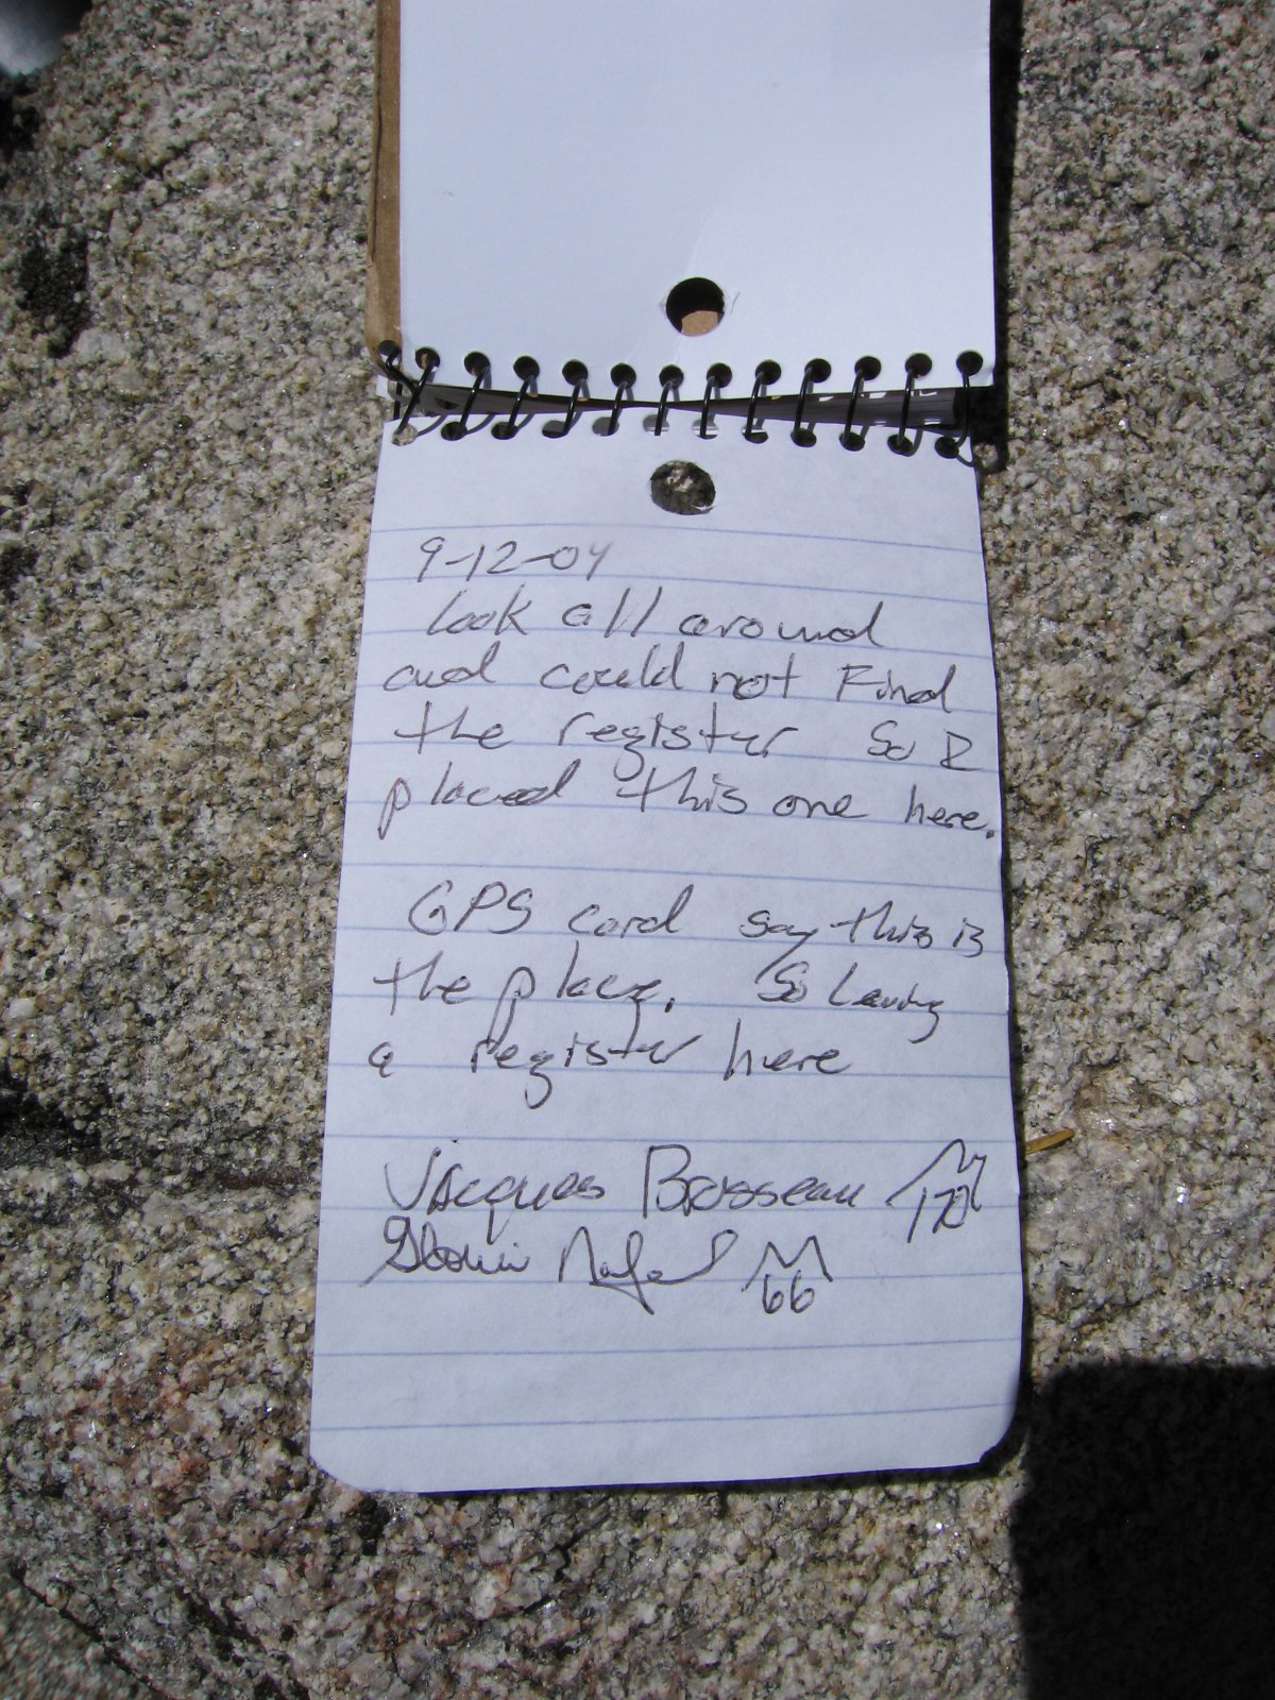 9-12-04
Look all around
and could not Find
the register So I
placed this one here.
GPS cord say this is
the place. So Leaving
a register here
Jacques Brosseau 170
66